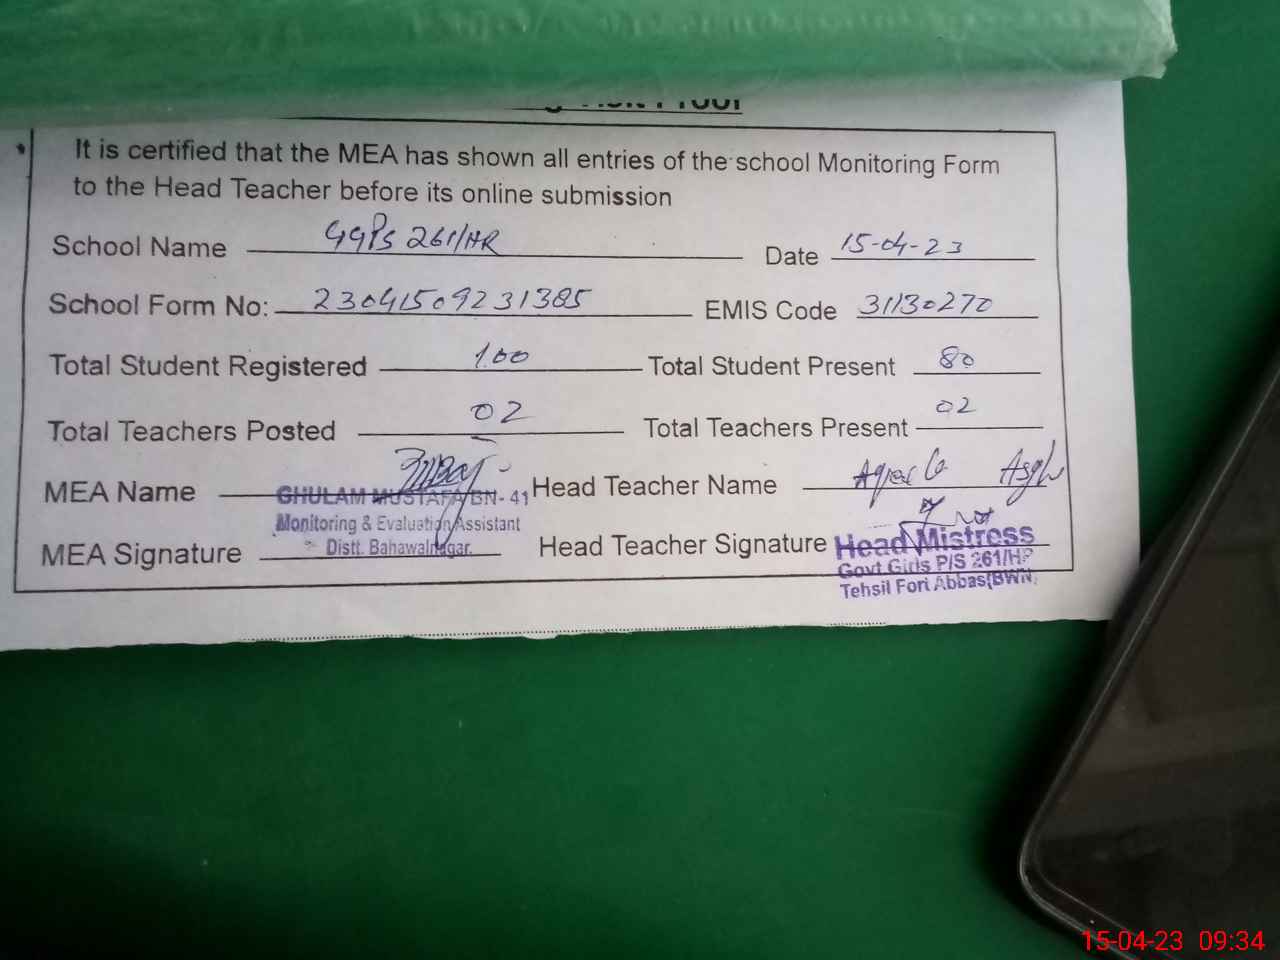 It is certified that the MEA has shown all entries of the school Monitoring Form
to the Head Teacher before its online submission
School Name GGPS 261/HR Date 15-04-23
School Form No: 23041509231385 EMIS Code 31130270
Total Student Registered 100 Total Student Present 80
Total Teachers Posted 02 Total Teachers Present 02
MEA Name Head Teacher Name Asghar
GHULAM MUSTAFA BN-41
Monitoring & Evaluation Assistant
Distt. Bahawalnagar.
MEA Signature Head Teacher Signature
Head Mistress
Govt Girls P/S 261/HR
Tehsil Fort Abbas(BWN)
15-04-23 09:34